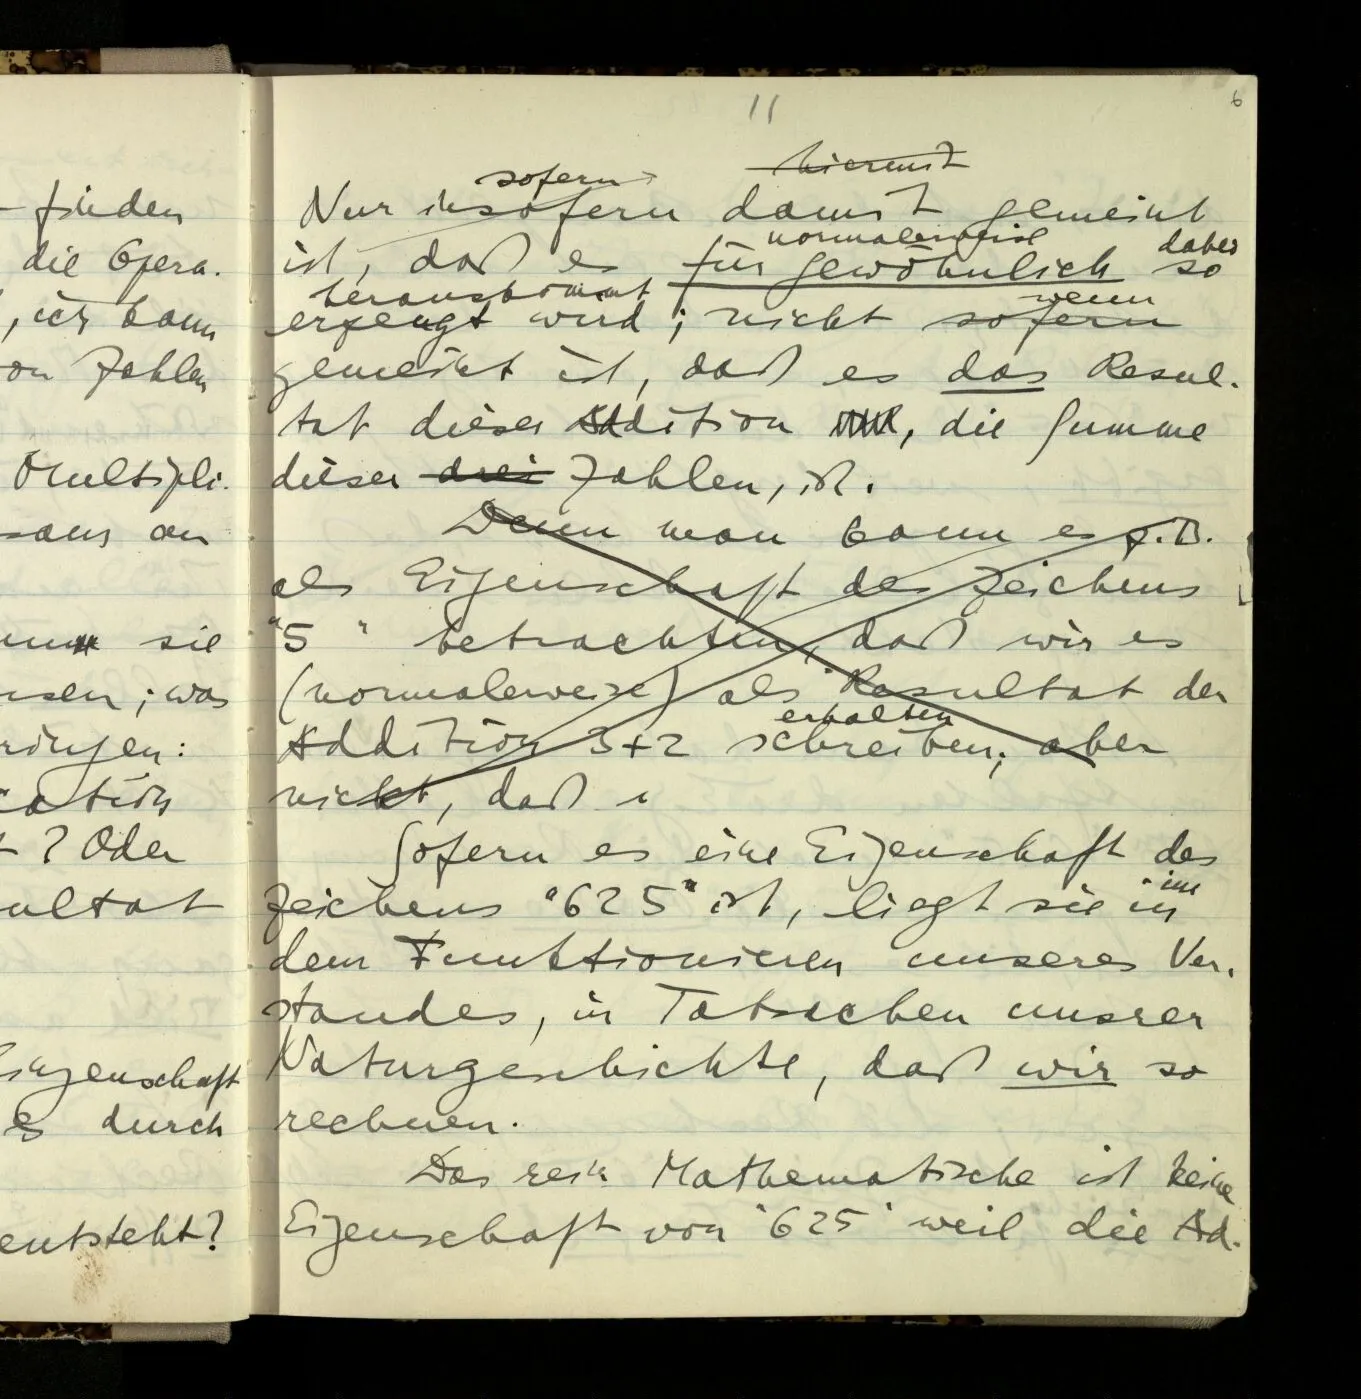 - finden
die Opera-
, ich kann
on Zahlen
Multipli-
sie
; was
ringen:
cation
? Oder
ultat
Eigenschaft
es durch
entsteht?
11
6
hiermit
sofern
Nur insofern damit gemeint
normalerweise dabei
ist, daß es für gewöhnlich so
herauskommt wenn
erzeugt wird; nicht sofern
gemeint ist, daß es das Resul-
tat dieser Addition, die Summe
dieser drei Zahlen, ist.
Denn man kann es z.B.
als Eigenschaft des Zeichens
"5" betrachten, daß wir es
(normalerweise) als Resultat der
erhalten
Addition 3+2 schreiben; aber
nicht, daß
Sofern es eine Eigenschaft des
im
Zeichens "625" ist, liegt sie in
dem Funktionieren unseres Ver-
standes, in Tatsachen unsrer
Naturgeschichte, daß wir so
rechnen.
Das rein Mathematische ist keine
Eigenschaft von '625' weil die Ad-